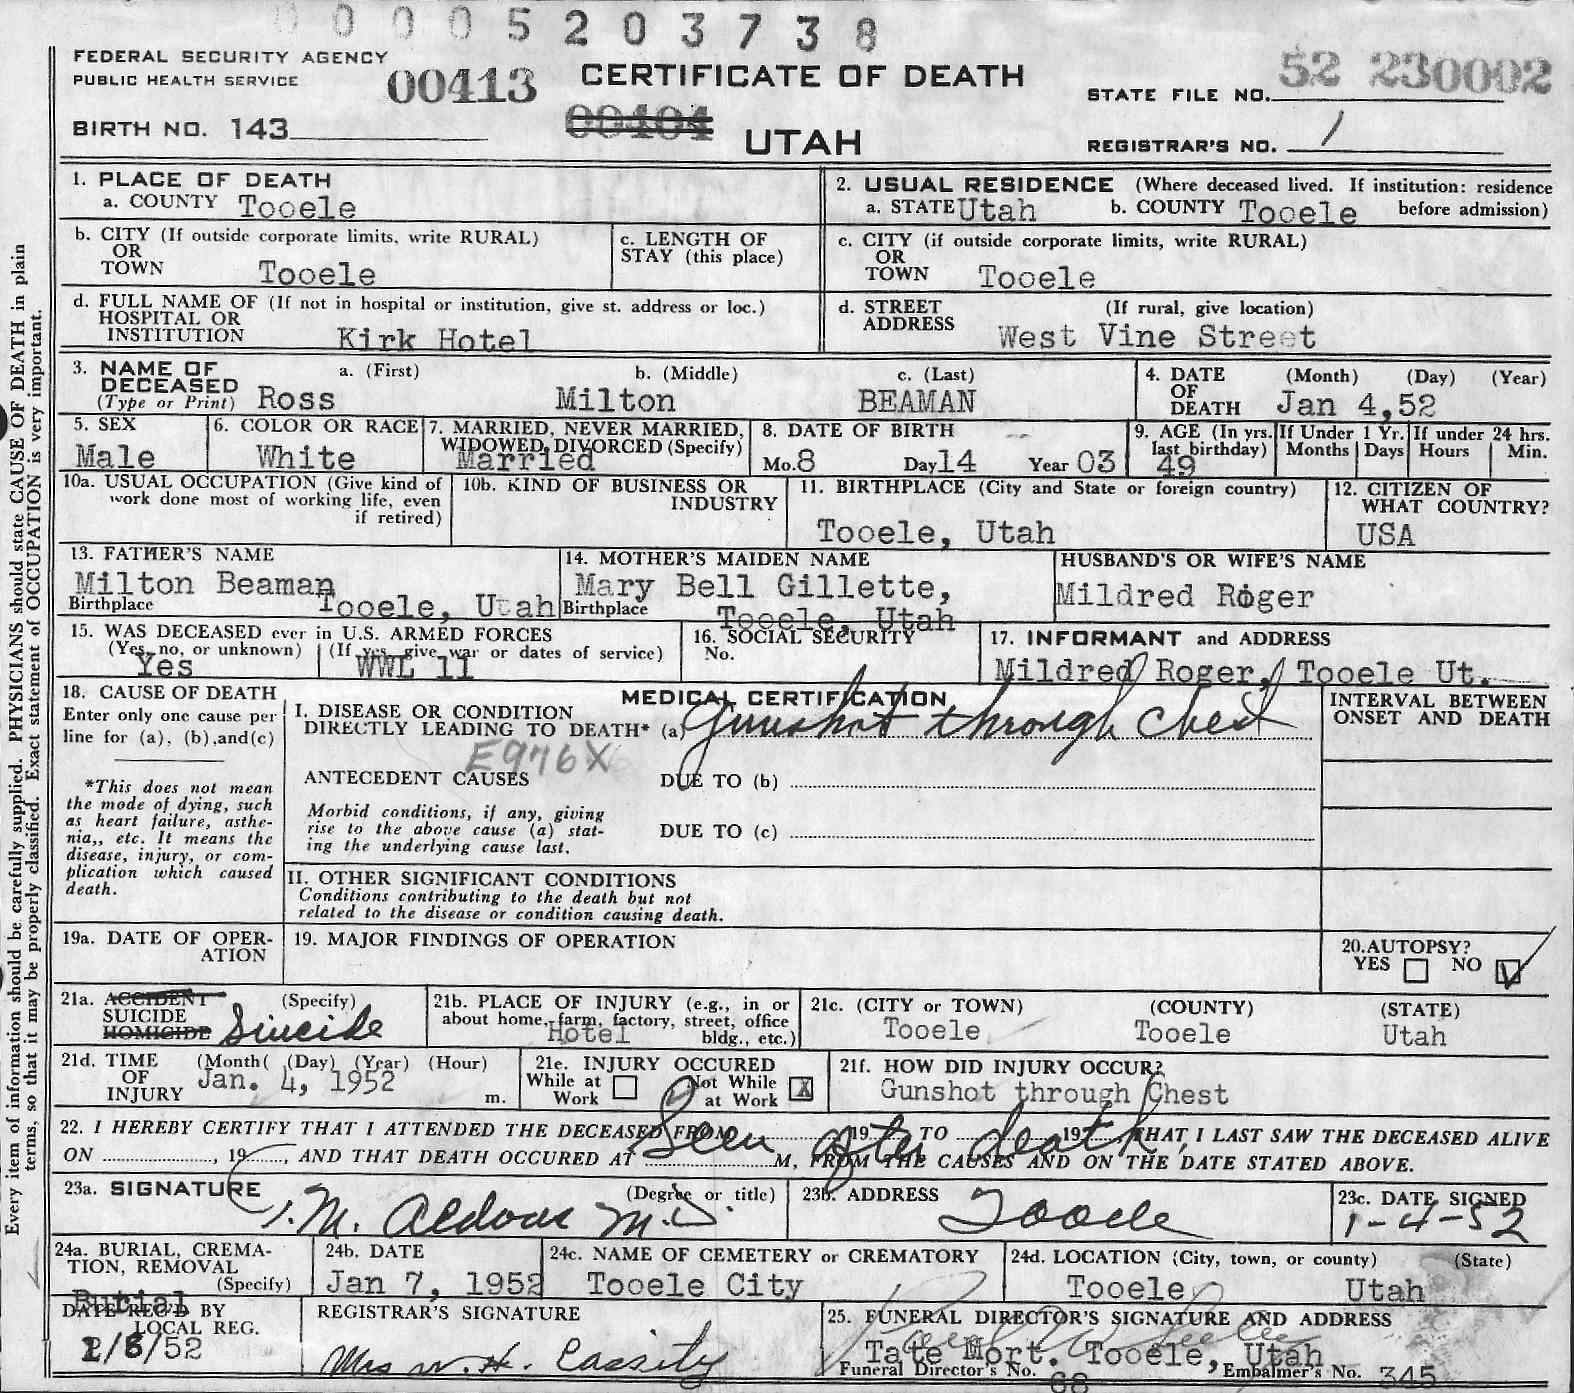 0 0 0 5 2 0 3 7 3 8
FEDERAL SECURITY AGENCY
PUBLIC HEALTH SERVICE
00413
CERTIFICATE OF DEATH
52 230002
STATE FILE NO.
BIRTH NO. 143
00404
UTAH
REGISTRAR'S NO. 1
Every item of information should be carefully supplied. PHYSICIANS should state CAUSE OF DEATH in plain
terms, so that it may be properly classified. Exact statement of OCCUPATION is very important.
1. PLACE OF DEATH
a. COUNTY Tooele
2. USUAL RESIDENCE (Where deceased lived. If institution: residence
a. STATE Utah b. COUNTY Tooele before admission)
b. CITY (If outside corporate limits, write RURAL)
OR
TOWN Tooele
c. LENGTH OF
STAY (this place)
c. CITY (if outside corporate limits, write RURAL)
OR
TOWN Tooele
d. FULL NAME OF (If not in hospital or institution, give st. address or loc.)
HOSPITAL OR
INSTITUTION Kirk Hotel
d. STREET (If rural, give location)
ADDRESS West Vine Street
3. NAME OF a. (First) b. (Middle) c. (Last)
DECEASED
(Type or Print) Ross Milton BEAMAN
4. DATE (Month) (Day) (Year)
OF
DEATH Jan 4,52
5. SEX
Male
6. COLOR OR RACE
White
7. MARRIED, NEVER MARRIED,
WIDOWED, DIVORCED (Specify)
Married
8. DATE OF BIRTH
Mo.8 Day14 Year 03
9. AGE (In yrs.
last birthday)
49
If Under 1 Yr.
Months Days
If under 24 hrs.
Hours Min.
10a. USUAL OCCUPATION (Give kind of
work done most of working life, even
if retired)
10b. KIND OF BUSINESS OR
INDUSTRY
11. BIRTHPLACE (City and State or foreign country)
Tooele, Utah
12. CITIZEN OF
WHAT COUNTRY?
USA
13. FATHER'S NAME
Milton Beaman
Birthplace Tooele, Utah
14. MOTHER'S MAIDEN NAME
Mary Bell Gillette,
Birthplace Tooele, Utah
HUSBAND'S OR WIFE'S NAME
Mildred Roger
15. WAS DECEASED ever in U.S. ARMED FORCES
(Yes, no, or unknown) (If yes, give war or dates of service)
Yes WWL 11
16. SOCIAL SECURITY
No.
17. INFORMANT and ADDRESS
Mildred Roger, Tooele Ut.
18. CAUSE OF DEATH
Enter only one cause per
line for (a), (b), and (c)
*This does not mean
the mode of dying, such
as heart failure, asthe-
nia,, etc. It means the
disease, injury, or com-
plication which caused
death.
MEDICAL CERTIFICATION
I. DISEASE OR CONDITION
DIRECTLY LEADING TO DEATH* (a) Gunshot through Chest
E976X
ANTECEDENT CAUSES DUE TO (b)
Morbid conditions, if any, giving
rise to the above cause (a) stat-
ing the underlying cause last.
DUE TO (c)
II. OTHER SIGNIFICANT CONDITIONS
Conditions contributing to the death but not
related to the disease or condition causing death.
INTERVAL BETWEEN
ONSET AND DEATH
19a. DATE OF OPER-
ATION
19. MAJOR FINDINGS OF OPERATION
20. AUTOPSY?
YES NO
21a. ACCIDENT (Specify)
SUICIDE
HOMICIDE Suicide
21b. PLACE OF INJURY (e.g., in or
about home, farm, factory, street, office
bldg., etc.)
Hotel
21c. (CITY or TOWN) (COUNTY) (STATE)
Tooele Tooele Utah
21d. TIME (Month( (Day) (Year) (Hour)
OF
INJURY Jan. 4, 1952 m.
21e. INJURY OCCURED
While at Work Not While at Work X
21f. HOW DID INJURY OCCUR?
Gunshot through Chest
22. I HEREBY CERTIFY THAT I ATTENDED THE DECEASED FROM 19 TO 19 THAT I LAST SAW THE DECEASED ALIVE
Seen after death
ON , 19 , AND THAT DEATH OCCURED AT M, FROM THE CAUSES AND ON THE DATE STATED ABOVE.
23a. SIGNATURE (Degree or title)
M. Aldous M.D.
23b. ADDRESS
Tooele
23c. DATE SIGNED
1-4-52
24a. BURIAL, CREMA-
TION, REMOVAL
(Specify)
Burial
24b. DATE
Jan 7, 1952
24c. NAME OF CEMETERY or CREMATORY
Tooele City
24d. LOCATION (City, town, or county) (State)
Tooele, Utah
DATE REC'D BY
LOCAL REG.
/52
REGISTRAR'S SIGNATURE
Mrs W. H. Cassity
25. FUNERAL DIRECTOR'S SIGNATURE AND ADDRESS
Tate Mort. Tooele, Utah
Funeral Director's No. 68 Embalmer's No. 345